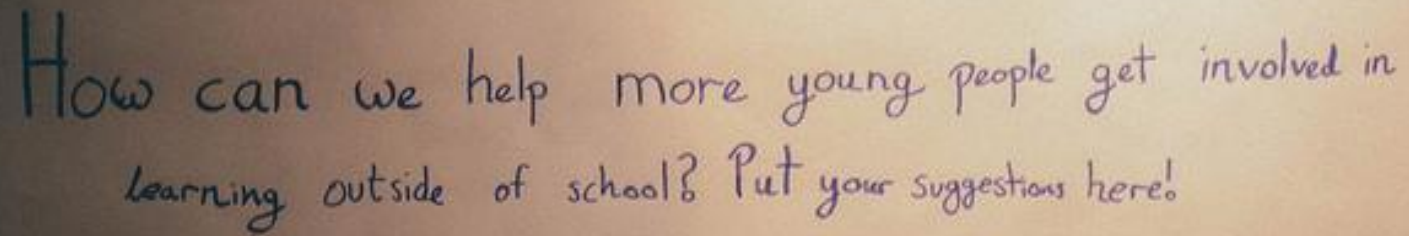 How can we help more young people get involved in
learning outside of school? Put your suggestions here!